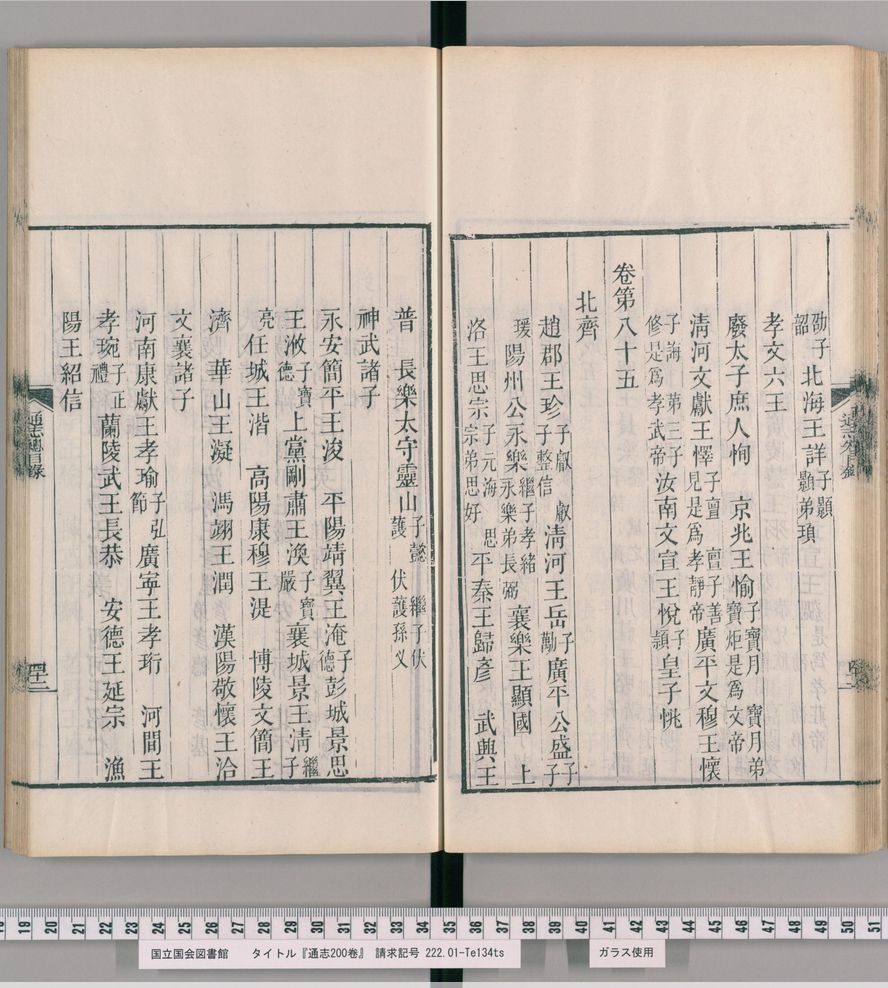 劭子韶 北海王詳 子顥 顥弟頊
孝文六王
廢太子庶人恂 京兆王愉 子寶月 寶月弟寶炬是爲文帝
淸河文獻王懌 子亶 亶子善見是爲孝靜帝 廣平文穆王懷
子誨 第三子修是爲孝武帝 汝南文宣王悅 子頴 皇子恌
卷第八十五
北齊
趙郡王琛 子叡 叡子整信 淸河王岳 子勱 廣平公盛 子子
瑗 陽州公永樂 繼子孝緒 永樂弟長弼 襄樂王顯國 上
洛王思宗 子元海 思宗弟思好 平秦王歸彥 武興王
普 長樂太守靈山 子懿 繼子伏護 伏護孫乂
神武諸子
永安簡平王浚 平陽靖翼王淹 子德 彭城景思
王浟 子寶德 上黨剛肅王渙 子寶嚴 襄城景王淯 繼子
亮 任城王湝 高陽康穆王湜 博陵文簡王
濟 華山王凝 馮翊王潤 漢陽敬懷王洽
文襄諸子
河南康獻王孝瑜 子弘節 廣寧王孝珩 河間王
孝琬 子正禮 蘭陵武王長恭 安德王延宗 漁
陽王紹信
通志總目錄
四十二
通志總目錄
国立国会図書館 タイトル『通志200巻』 請求記号 222.01-Te134ts
ガラス使用
19 20 21 22 23 24 25 26 27 28 29 30 31 32 33 34 35 36 37 38 39 40 41 42 43 44 45 46 47 48 49 50 51